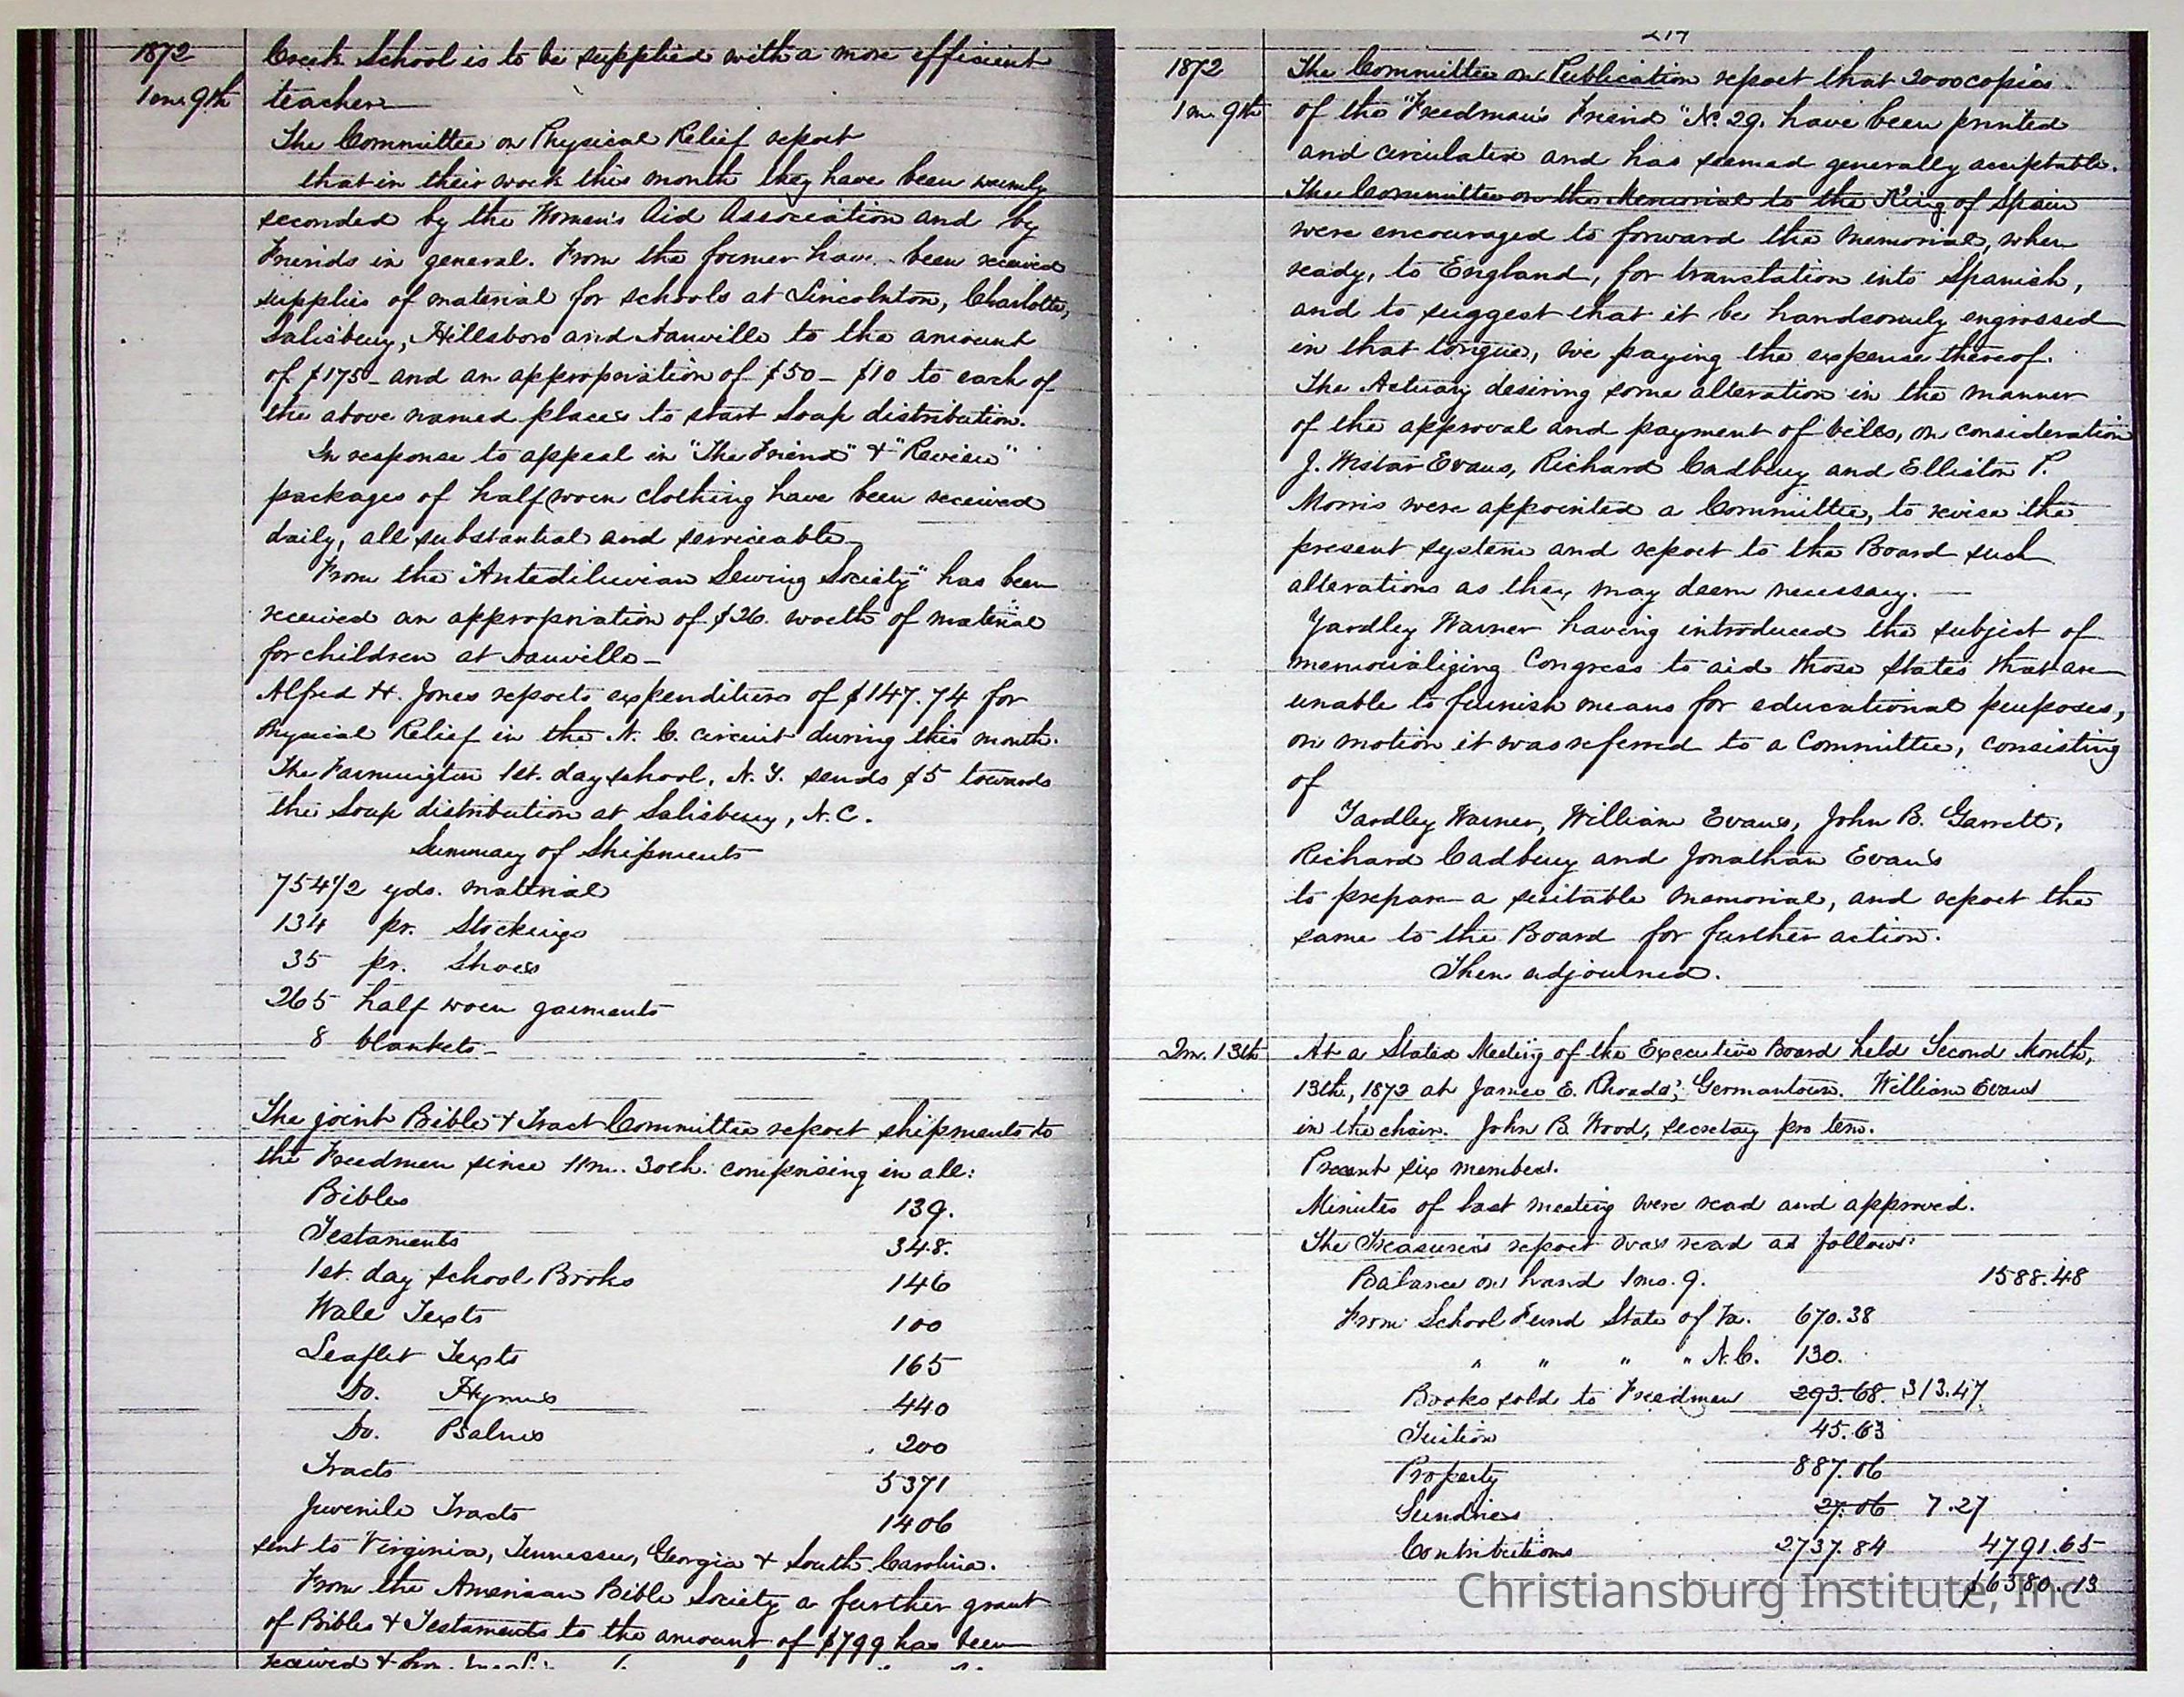 1872
1 m. 9th
Creek School is to be supplied with a more efficient
teacher
The Committee on Physical Relief report
that in their work this month they have been warmly
seconded by the Women's Aid Association and by
Friends in general. From the former have been received
supplies of material for schools at Lincolnton, Charlotte,
Salisbury, Hillsboro and Danville to the amount
of $175 - and an appropriation of $50 - $10 to each of
the above named places to start Soap distribution.
In response to appeal in "The Friend" & "Review"
packages of half worn clothing have been received
daily, all substantial and serviceable -
From the "Antediluvian Sewing Society" has been
received an appropriation of $26. worth of material
for children at Danville -
Alfred H. Jones reports expenditure of $147.74 for
Physical Relief in the N. C. circuit during this month.
The Farmington 1st. day school, N. Y. sends $5 towards
the Soap distribution at Salisbury, N.C.
Summary of Shipments
754 1/2 yds. material
134 pr. Stockings
35 pr. Shoes
265 half worn garments
8 blankets -
The joint Bible & Tract Committee report shipments to
the Freedmen since 11m. 30th. comprising in all:
Bibles 139.
Testaments 348.
1st. day school Books 146
Wale Texts 100
Leaflet Texts 165
Do. Hymns 440
Do. Psalms 200
Tracts 5371
Juvenile Tracts 1406
sent to Virginia, Tennessee, Georgia & South Carolina.
From the American Bible Society a further grant
of Bibles & Testaments to the amount of $799 has been
received &
217
1872
1 m. 9th
The Committee on Publication report that 2000 copies
of the "Freedman's Friend" No. 29. have been printed
and circulated and has seemed generally acceptable.
The Committee on the Memorial to the King of Spain
were encouraged to forward the memorial, when
ready, to England, for translation into Spanish,
and to suggest that it be handsomely engrossed
in that tongue, we paying the expense thereof.
The Actuary desiring some alteration in the manner
of the approval and payment of bills, on consideration
J. Wistar Evans, Richard Cadbury and Elliston P.
Morris were appointed a Committee, to revise the
present system and report to the Board such
alterations as they may deem necessary. —
Yardley Warner having introduced the subject of
memorializing Congress to aid those States that are
unable to furnish means for educational purposes,
on motion it was referred to a Committee, consisting
of
Yardley Warner, William Evans, John B. Garrett,
Richard Cadbury and Jonathan Evans
to prepare a suitable memorial, and report the
same to the Board for further action.
Then adjourned.
2m. 13th
At a Stated Meeting of the Executive Board held Second Month,
13th., 1872 at James E. Rhoads', Germantown. William Evans
in the chair. John B. Wood, secretary pro tem.
Present six members.
Minutes of last meeting were read and approved.
The Treasurer's report was read as follows:
Balance on hand 1mo. 9. 1588.48
From School Fund State of Va. 670.38
" " " " N.C. 130.
Books sold to Freedmen 293.68 313.47
Tuition 45.63
Property 887.06
Sundries 27.06 7.27
Contributions 2737.84 4791.65
$6380.13
Christiansburg Institute, Inc